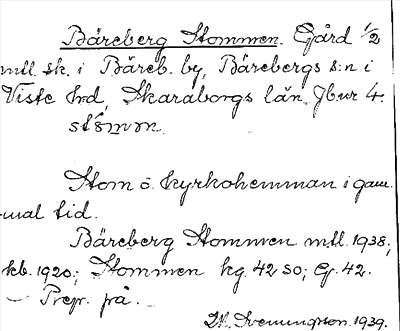 Bäreberg Stommen. Gård 1/2
mtl. sk. i Bäreb. by, Bärebergs s:n i
Viste hrd, Skaraborgs län. Jbur 4.
Stom o. kyrkohemman i gam-
mal tid.
Bäreberg Stommen mtl. 1938;
kb. 1920; Stommen kg. 42 SO; G. 42.
Prep. på.
1939.